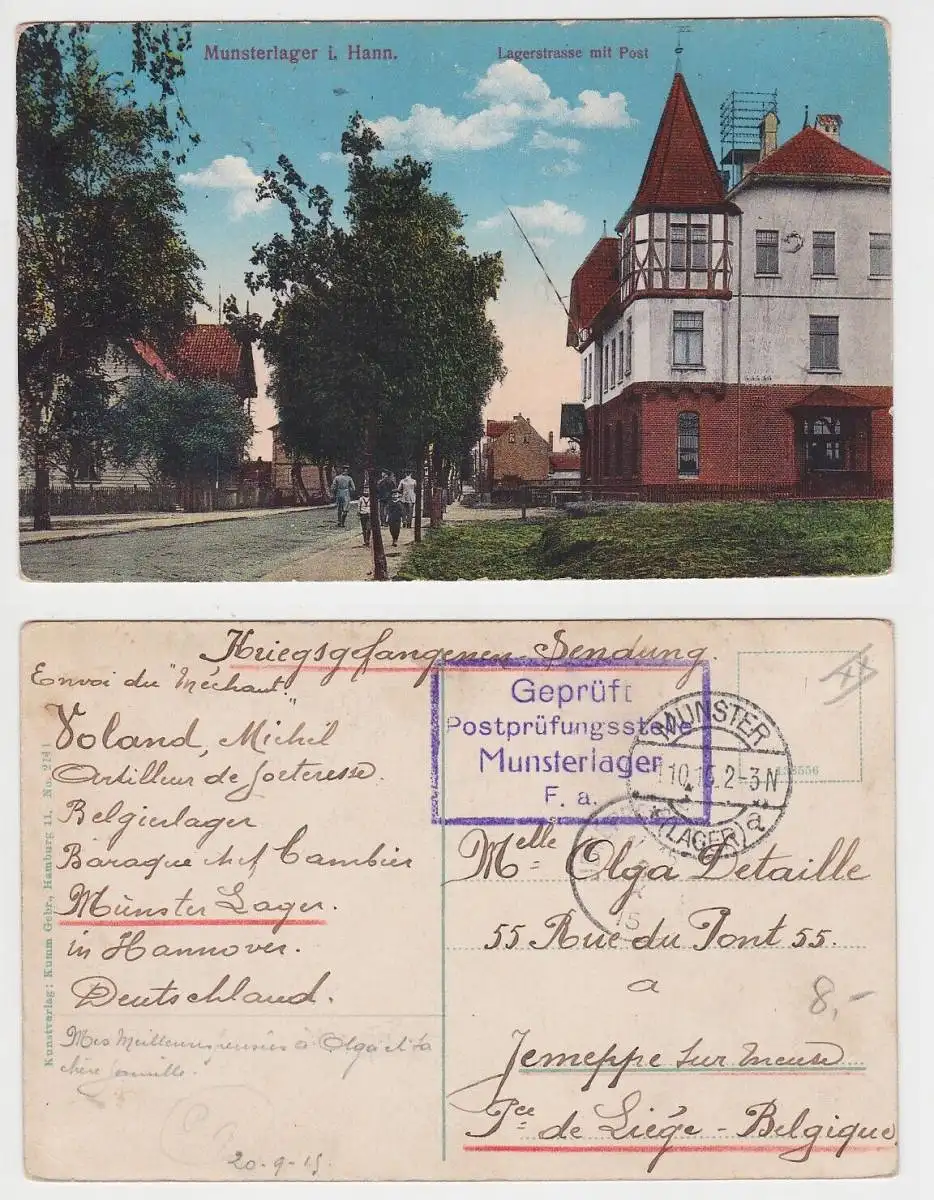 Munsterlager i. Hann.
Lagerstrasse mit Post
Kriegsgfangenen Sendung.
Envoi du "Méchant"
Voland, Michel
Artilleur de forteresse.
Belgierlager
Baraque chef Cambier
Münster Lager.
in Hannover.
Deutschland.
Mes Meilleures pensées à Olga et sa
chère famille.
20-9-15
Kunstverlag: Kumm Gebr., Hamburg 11. No. 2141
Geprüft
Postprüfungsstelle
Munsterlager
F. a.
MUNSTER
10.15.2-3N
(LAGER) a
15
Melle Olga Detaille
55 Rue du Pont 55.
a
8,-
Jemeppe sur meuse
Pce de Liége - Belgique